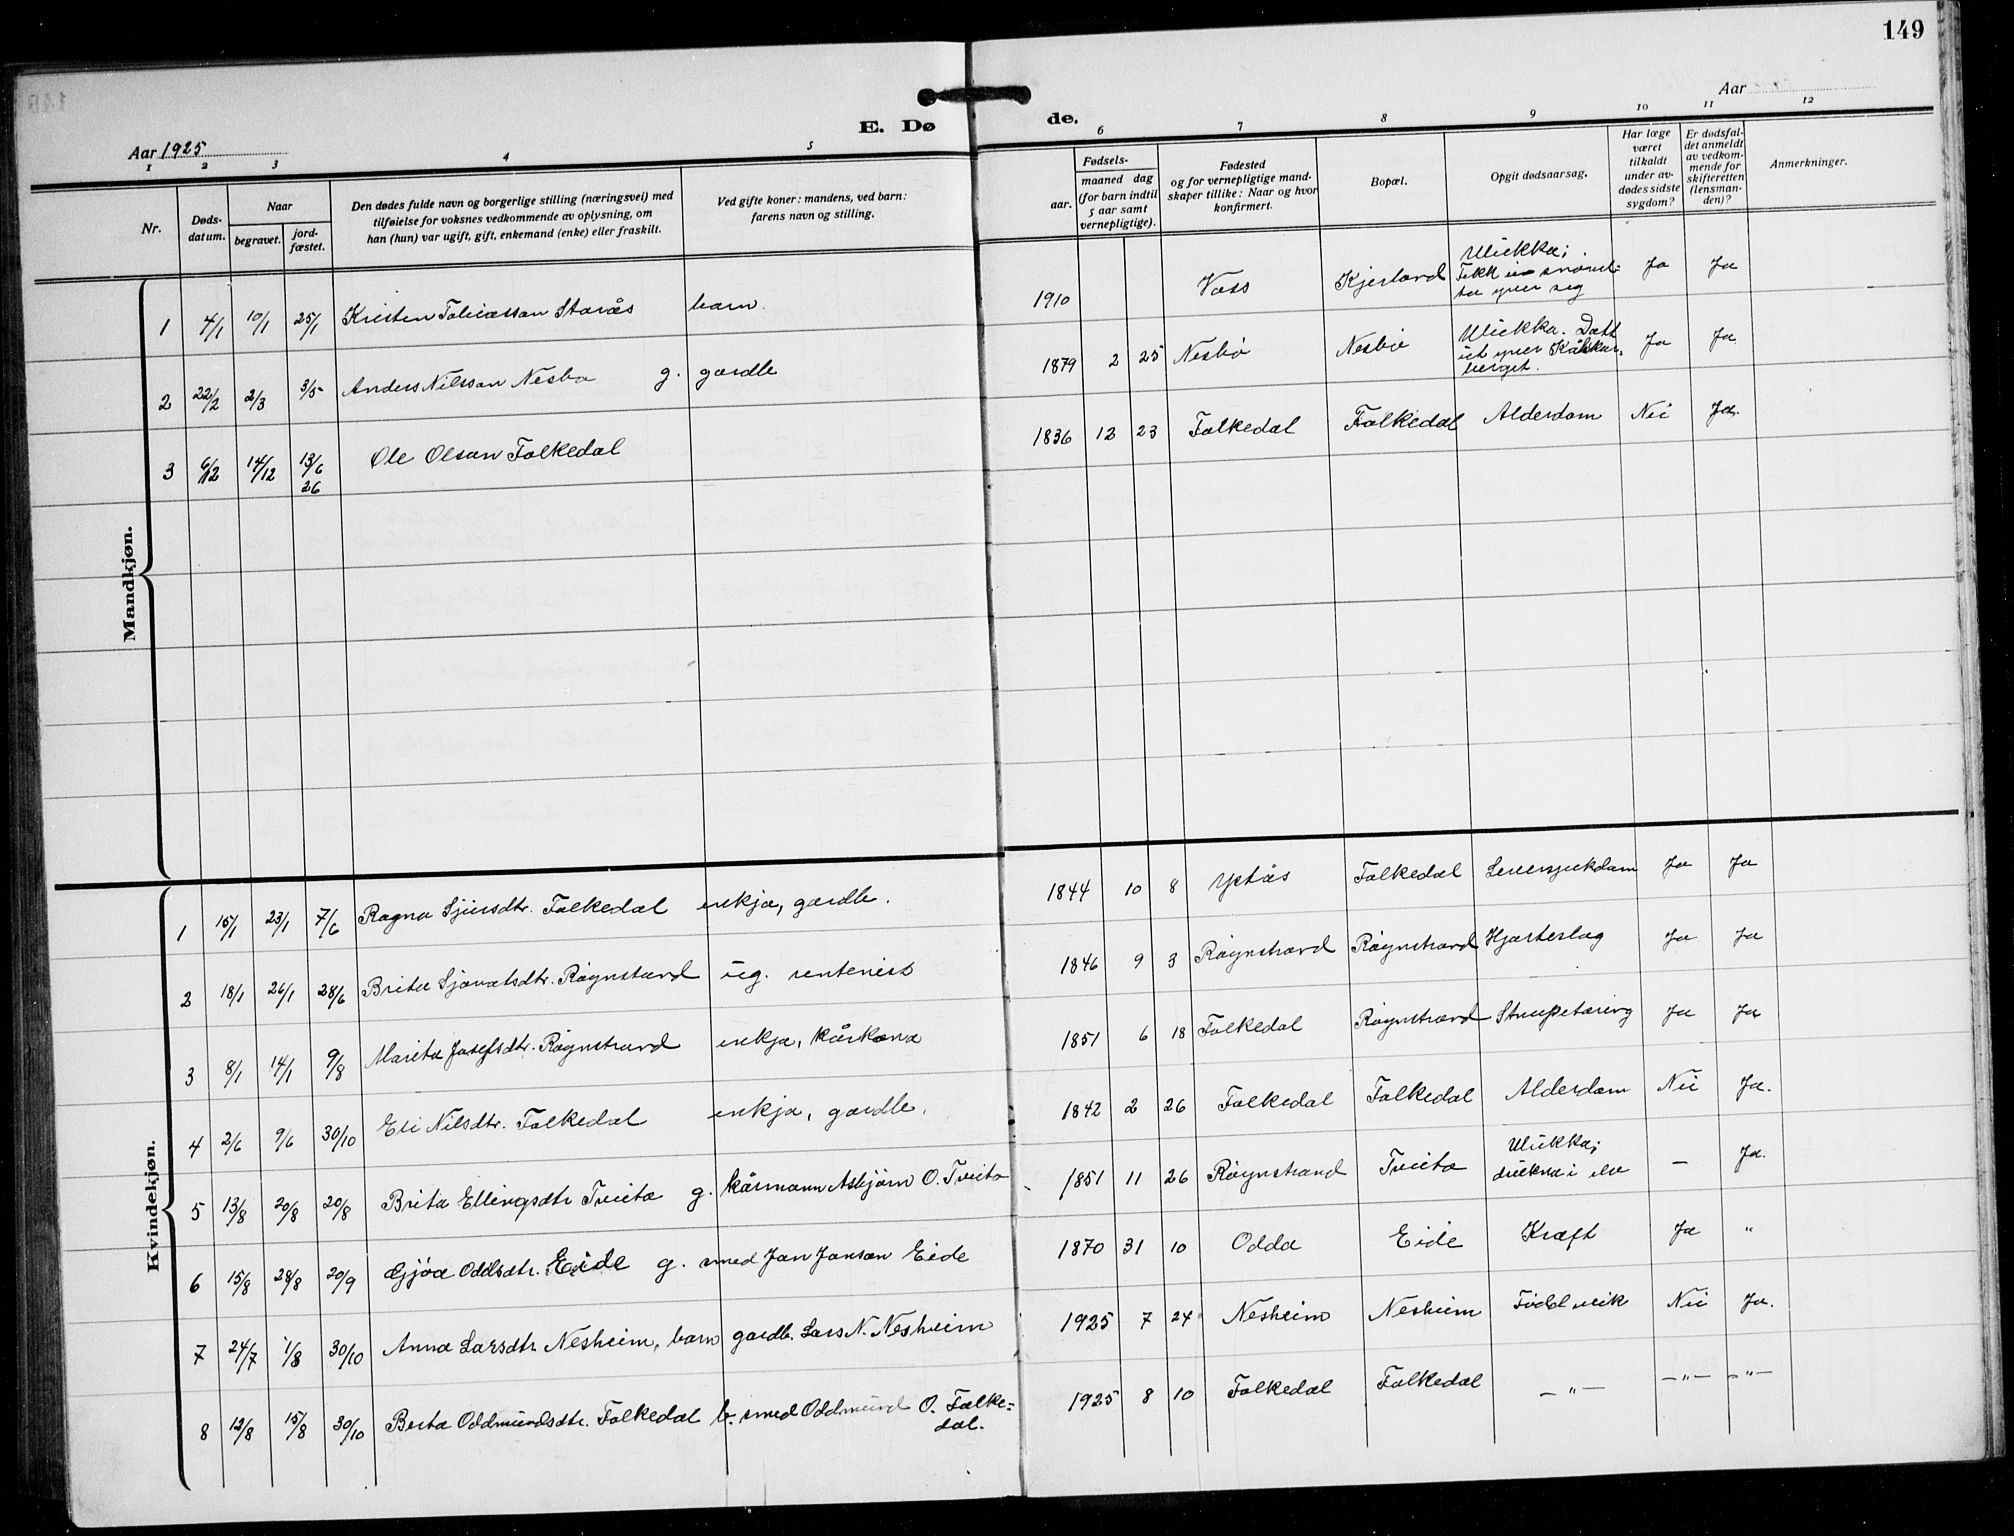 149
E. Døde.
Aar 1925
Aar
1 2 3 4 5 6 7 8 9 10 11 12
Nr.
Døds-datum.
Naar
begravet.
jord-fæstet.
Den dødes fulde navn og borgerlige stilling (næringsvei) med
tilføielse for voksnes vedkommende av oplysning, om
han (hun) var ugift, gift, enkemand (enke) eller fraskilt.
Ved gifte koner: mandens, ved barn:
farens navn og stilling.
Fødsels-
aar.
maaned dag
(for barn indtil
5 aar samt
vernepligtige).
Fødested
og for vernepligtige mand-
skaper tillike: Naar og hvor
konfirmert.
Bopæl.
Opgit dødsaarsag.
Har læge
været
tilkaldt
under av-
dødes sidste
sygdom?
Er dødsfal-
det anmeldt
av vedkom-
mende for
skifteretten
(lensman-
den)?
Anmerkninger.
Mandkjøn.
1 4/1 10/1 25/1 Kristen Tobiasson Starås barn. 1910 Voss Kjerland Ulukka; Fekk ... over seg Ja Ja
2 22/2 2/3 3/5 Anders Nilsson Nesbø g. gardb 1879 2 25 Nesbø Nesbø Ulukka. Datt ut yver ... berget. Ja Ja
3 6/12 14/12 13/6 26 Ole Olson Folkedal 1836 12 23 Folkedal Folkedal Alderdom Nei Ja.
Kvindekjøn.
1 15/1 23/1 7/6 Ragna Sjursdtr. Folkedal enkja, gardb. 1844 10 8 Ystås Folkedal Leversjukdom Ja Ja
2 18/1 26/1 28/6 Brita Sjovatsdtr. Røynstrand ug. rentenist 1846 9 3 Røynstrand Røynstrand Hjarteslag Ja Ja
3 8/1 14/1 9/8 Marita Josefsdtr. Røynstrand enkja, kårkona 1851 6 18 Folkedal Røynstrand Strupetæring Ja Ja
4 2/6 9/6 30/10 Eli Nilsdtr. Folkedal enkja, gardb. 1842 2 26 Folkedal Folkedal Alderdom Nei Ja.
5 13/8 20/8 20/8 Brita Ellingsdtr Tveita g. kårmann Asbjørn O. Tveito 1851 11 26 Røynstrand Tveita Ulukka; drukna i elv — Ja.
6 15/8 28/8 20/9 Gjøa Oddsdtr. Eide g. smed Jon Jonson Eide 1870 31 10 Odda Eide Kræft Ja "
7 24/7 1/8 30/10 Anna Larsdtr Nesheim, barn gardb. Lars N. Nesheim 1925 7 24 Nesheim Nesheim Fødd veik Nei Ja.
8 12/8 15/8 30/10 Berta Oddmundsdtr. Folkedal b. smed Oddmund O. Folke=dal. 1925 8 10 Folkedal Folkedal —"— —"— —"—